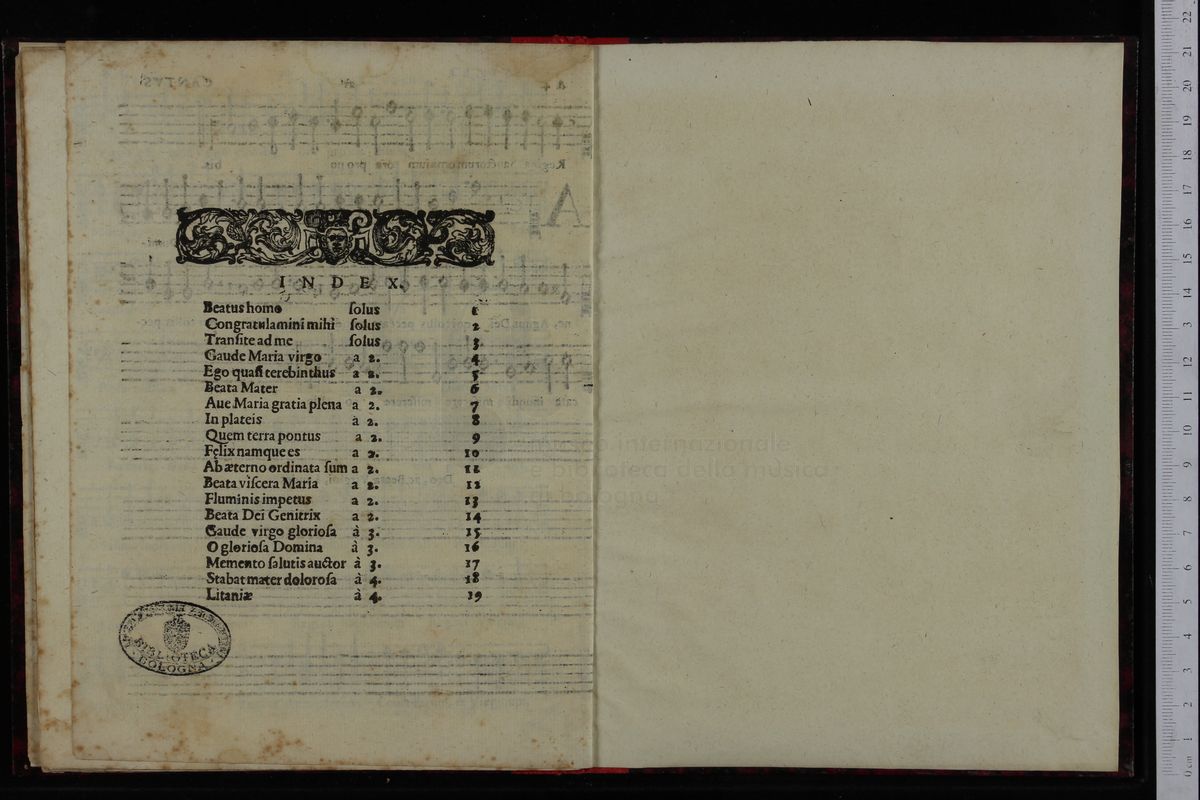 INDEX.
Beatus homo ſolus 1
Congratulamini mihi ſolus 2
Tranſite ad me ſolus 3
Gaude Maria virgo a 2. 4
Ego quaſi terebinthus a 2. 5
Beata Mater a 2. 6
Aue Maria gratia plena a 2. 7
In plateis à 2. 8
Quem terra pontus a 2. 9
Felix namque es a 2. 10
Ab æterno ordinata ſum a 2. 11
Beata viſcera Maria a 2. 12
Fluminis impetus a 2. 13
Beata Dei Genitrix a 2. 14
Gaude virgo glorioſa à 3. 15
O glorioſa Domina à 3. 16
Memento ſalutis auctor à 3. 17
Stabat mater doloroſa à 4. 18
Litaniæ à 4. 19
BIBLIOTECA
BOLOGNA
museo internazionale
e biblioteca della musica
di bologna